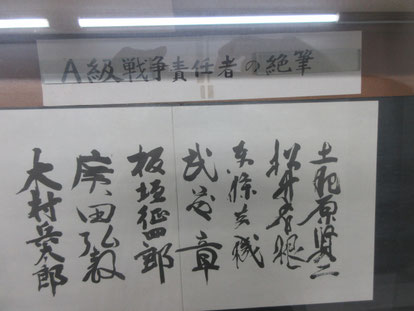 A級戦争責任者の絶筆
土肥原賢二
松井石根
東條英機
武藤章
板垣征四郎
廣田弘毅
木村兵太郎